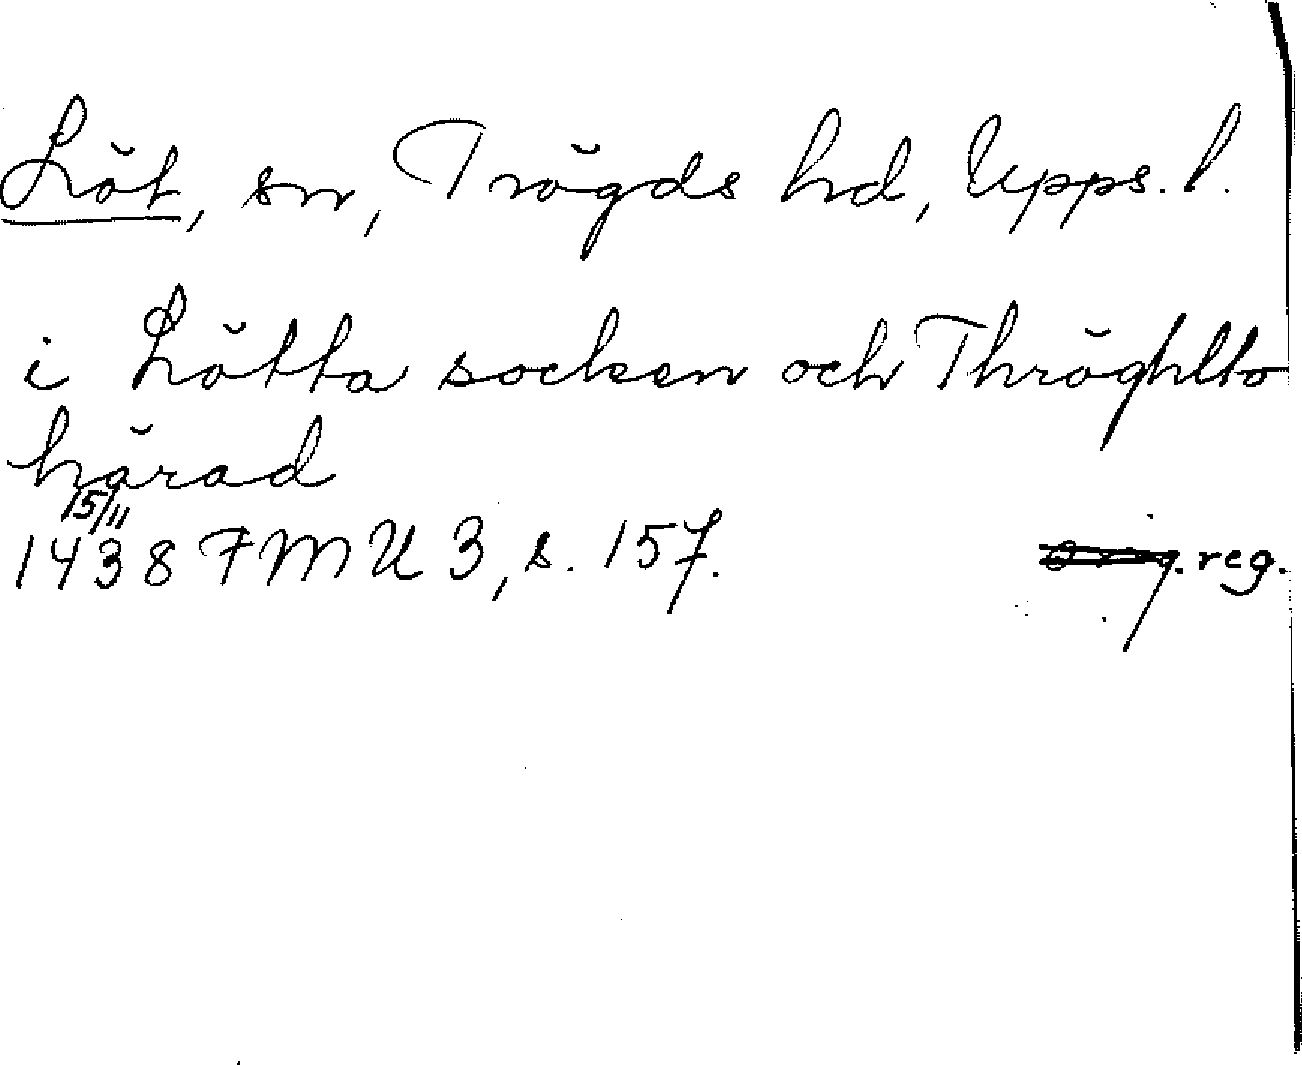 Löt, sn, Trögds hd, Upps. l.
i Lötta socken och Thröghlto
härad
15/11
1438 FMU 3, s. 157. orig. reg.